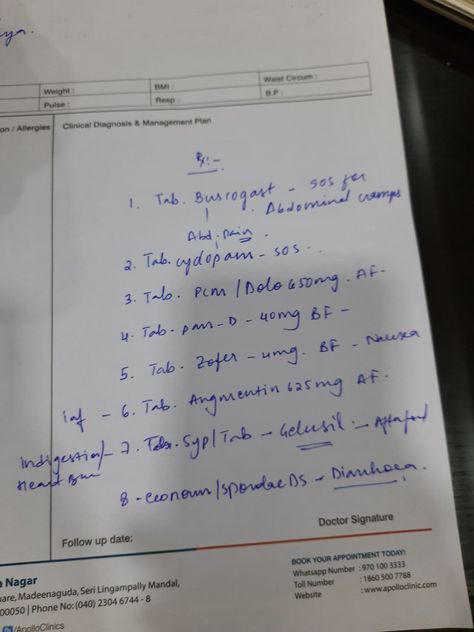 Weight : BMI : Waist Circum :
Pulse : Resp : B.P :
on / Allergies Clinical Diagnosis & Management Plan
Rx:-
1. Tab. Buscogast - SOS for
Abdominal cramps
Abd. pain.
2. Tab. cyclopam - SOS.
3. Tab. PCM / Dolo 650mg. AF
4. Tab. pan-D - 40mg BF -
5. Tab. Zofer - 4mg. BF - Nausea
inf - 6. Tab. Augmentin 625mg AF.
indigestion/ - 7. Syp/Tab - Gelusil -
Heart Burn
8 - econorm/Sporlac DS - Diarrhoea.
Doctor Signature
Follow up date:
BOOK YOUR APPOINTMENT TODAY!
Whatsapp Number : 970 100 3333
Toll Number : 1860 500 7788
Website : www.apolloclinic.com
a Nagar
uare, Madeenaguda, Seri Lingampally Mandal,
00050 | Phone No: (040) 2304 6744 - 8
/ApolloClinics